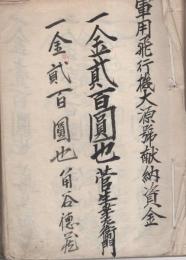 軍用飛行機大源號献納資金
一金貳百圓也 菅生
一金貳百圓也 角谷德